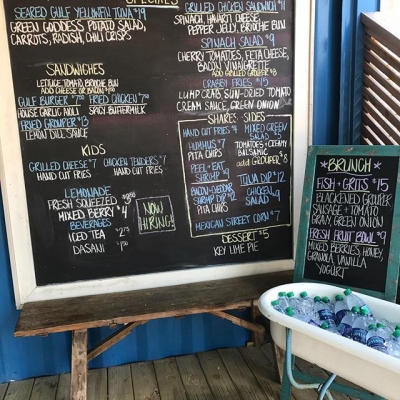 SPECIALS
SEARED GULF YELLOWFIN TUNA $19
GREEN GODDESS POTATO SALAD,
CARROTS, RADISH, CHILI CRISPS
SANDWICHES
LETTUCE TOMATO BRIOCHE BUN
ADD CHEESE OR BACON
GULF BURGER
FRIED CHICKEN
HOUSE GARLIC AIOLI
SPICY BUTTERMILK
FRIED GROUPER
LEMON DILL SAUCE
KIDS
GRILLED CHEESE $7
CHICKEN TENDERS $7
HAND CUT FRIES
HAND CUT FRIES
LEMONADE
FRESH SQUEEZED
MIXED BERRY $4
BEVERAGES
ICED TEA
DASANI
NOW
HIRING!
GRILLED CHICKEN SANDWICH
SPINACH, HAVARTI CHEESE,
PEPPER JELLY, BRIOCHE BUN
SPINACH SALAD $9
CHERRY TOMATOES, FETA CHEESE,
BACON VINAIGRETTE
ADD GRILLED GROUPER $8
CRABBY FRIES $15
LUMP CRAB SUN-DRIED TOMATO
CREAM SAUCE, GREEN ONION
SHARES · SIDES
HAND CUT FRIES
HUMMUS $7
PITA CHIPS
PEEL + EAT
SHRIMP
BACON-CHEDDAR
SHRIMP DIP
PITA CHIPS
MIXED GREEN
SALAD
TOMATOES + CREAMY
BALSAMIC
ADD GROUPER $8
TUNA DIP $12
CHICKEN
SALAD
MEXICAN STREET CORN $7
DESSERT $5
KEY LIME PIE
BRUNCH
FISH + GRITS $15
BLACKENED GROUPER
SAUSAGE + TOMATO
GRAVY, GREEN ONION
FRESH FRUIT BOWL $9
MIXED BERRIES, HONEY,
GRANOLA, VANILLA
YOGURT